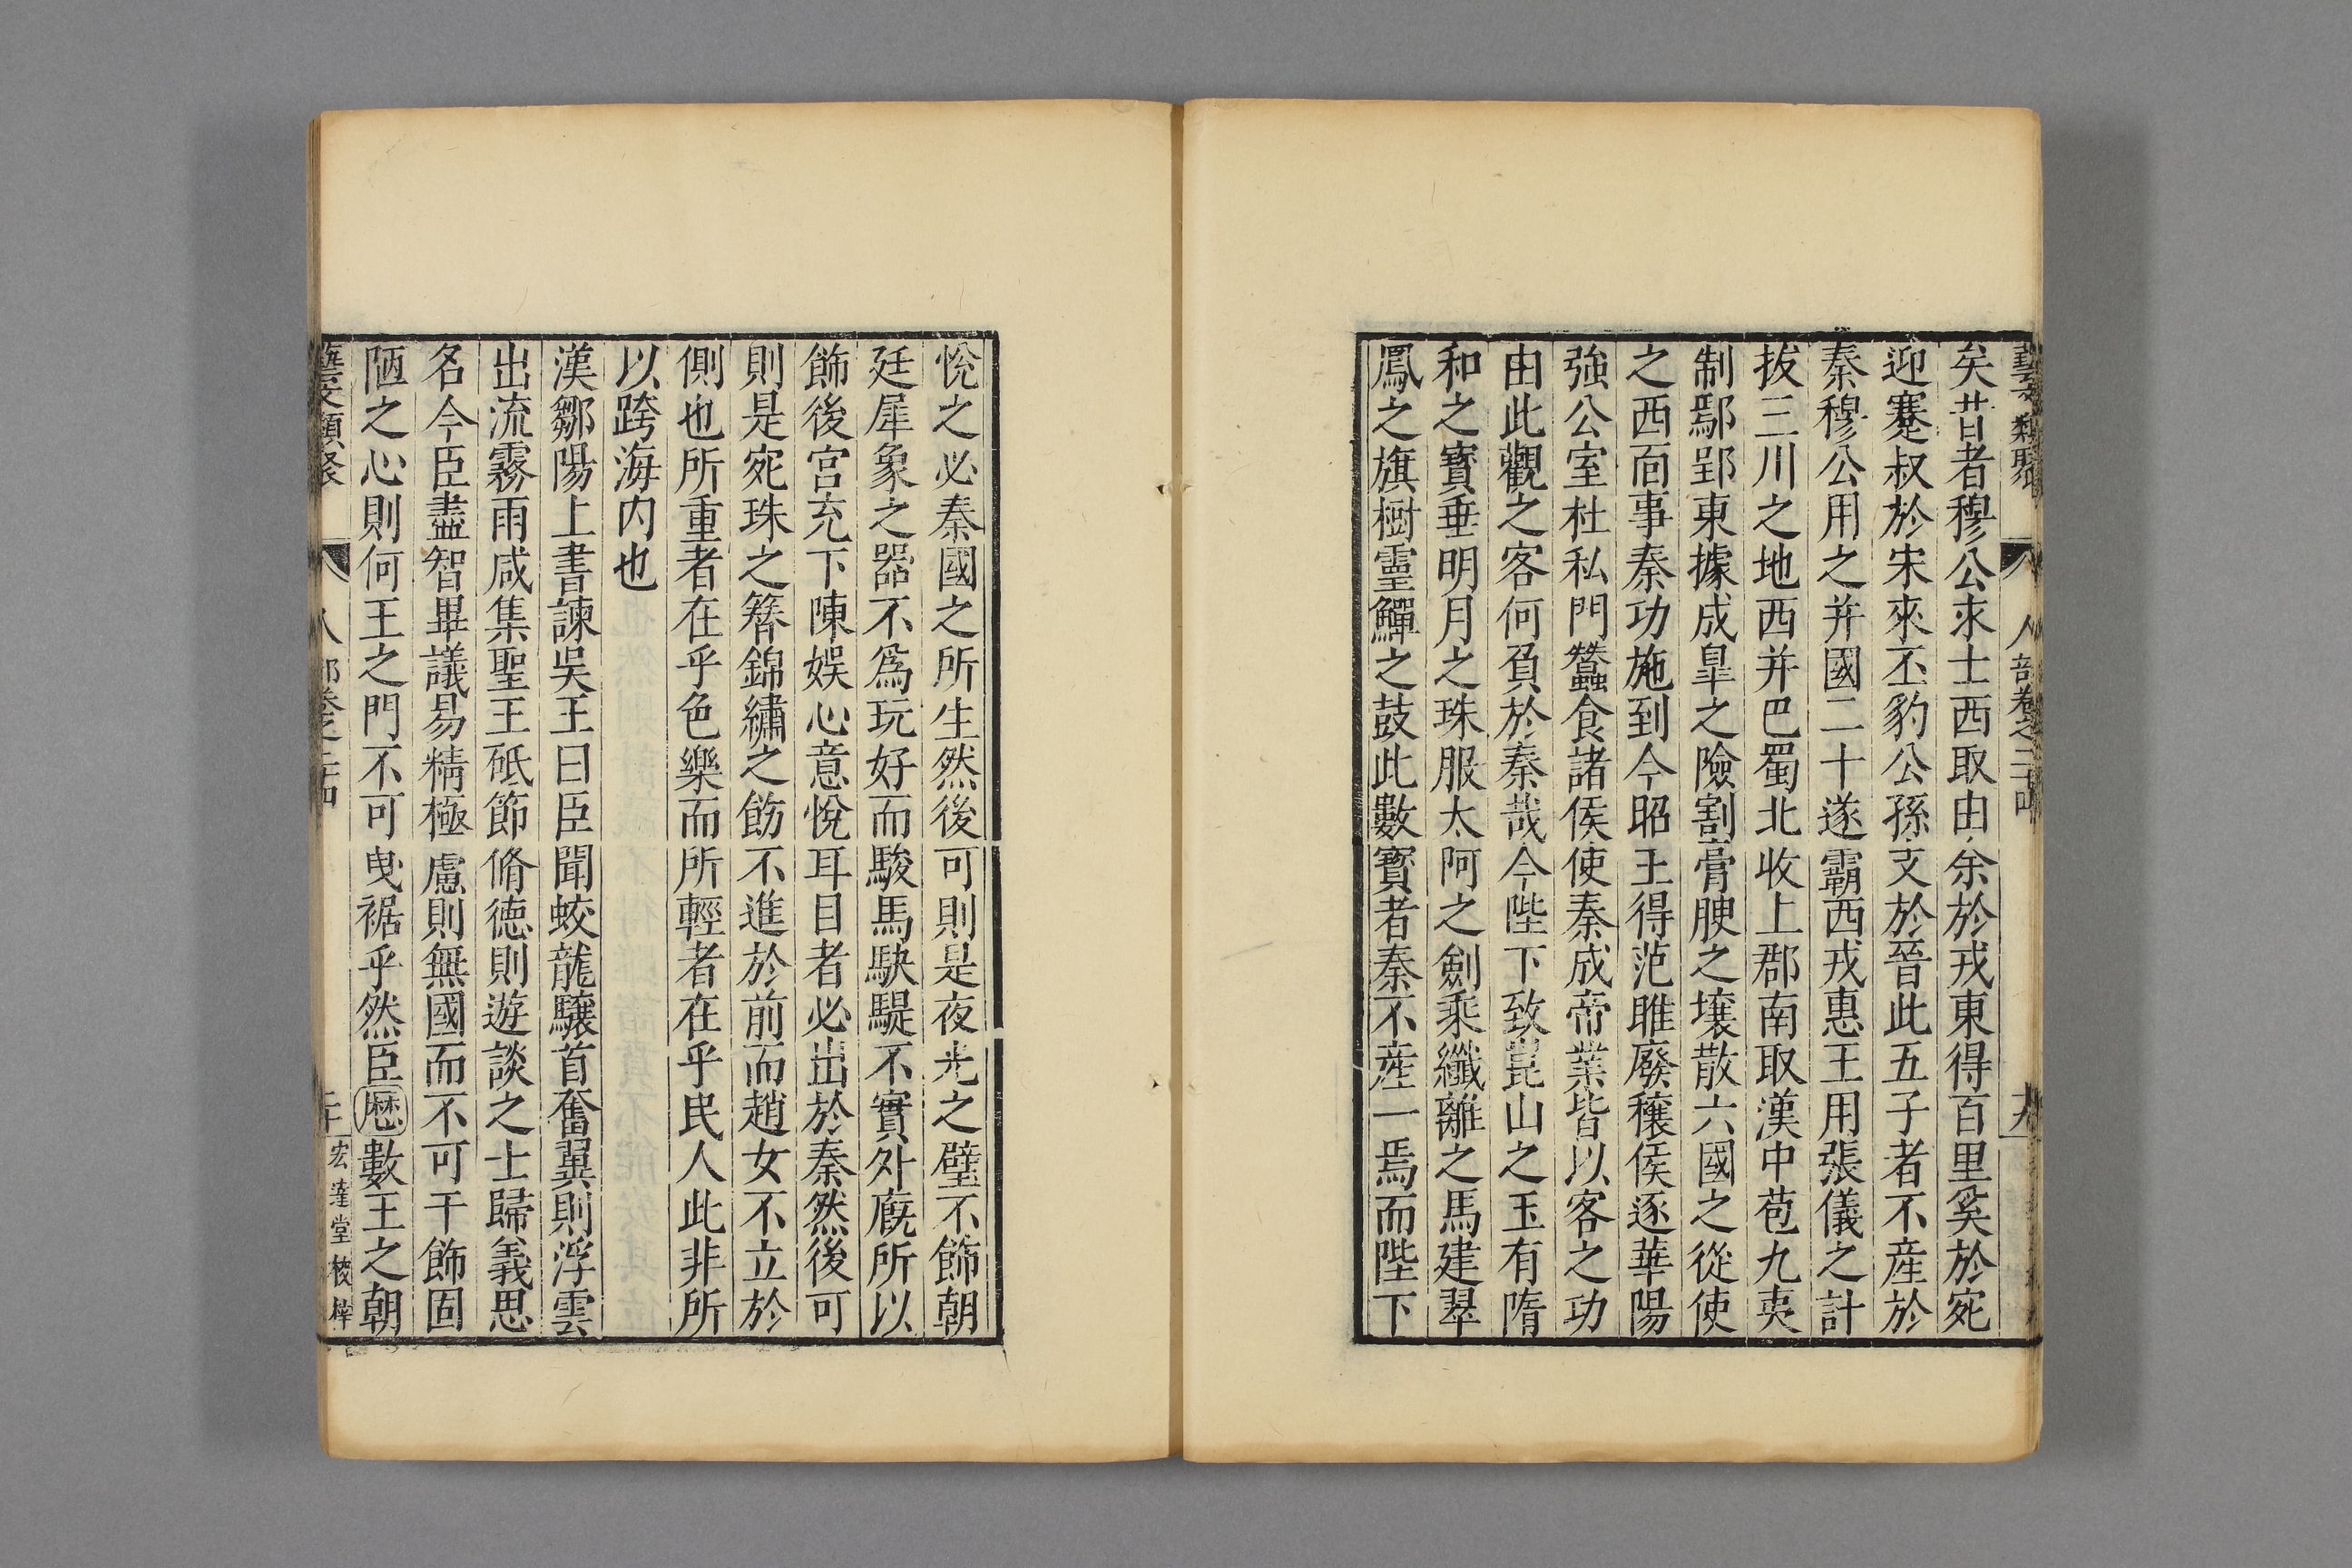 藝文類聚 人部卷之二十四 十九
矣昔者穆公求士西取由余於戎東得百里奚於宛
迎蹇叔於宋來丕豹公孫支於晉此五子者不產於
秦穆公用之并國二十遂霸西戎惠王用張儀之計
拔三川之地西并巴蜀北收上郡南取漢中苞九夷
制鄢郢東據成皐之險割膏腴之壤散六國之從使
之西面事秦功施到今昭王得范睢廢穰侯逐華陽
強公室杜私門蠶食諸侯使秦成帝業皆以客之功
由此觀之客何負於秦哉今陛下致崑山之玉有隋
和之寶垂明月之珠服太阿之劍乘纖離之馬建翠
鳳之旗樹靈鱓之鼓此數寶者秦不產一焉而陛下
悅之必秦國之所生然後可則是夜光之璧不飾朝
廷犀象之器不爲玩好而駿馬駃騠不實外廐所以
飾後宮充下陳娛心意悅耳目者必出於秦然後可
則是宛珠之簪錦繡之飭不進於前而趙女不立於
側也所重者在乎色樂而所輕者在乎民人此非所
以跨海內也
漢鄒陽上書諫吳王曰臣聞蛟龍驤首奮翼則浮雲
出流霧雨咸集聖王砥節脩德則遊談之士歸義思
名今臣盡智畢議易精極慮則無國而不可干飾固
陋之心則何王之門不可曳裾乎然臣歷數王之朝
藝文類聚 人部卷之二十四 二十 宏達堂校梓